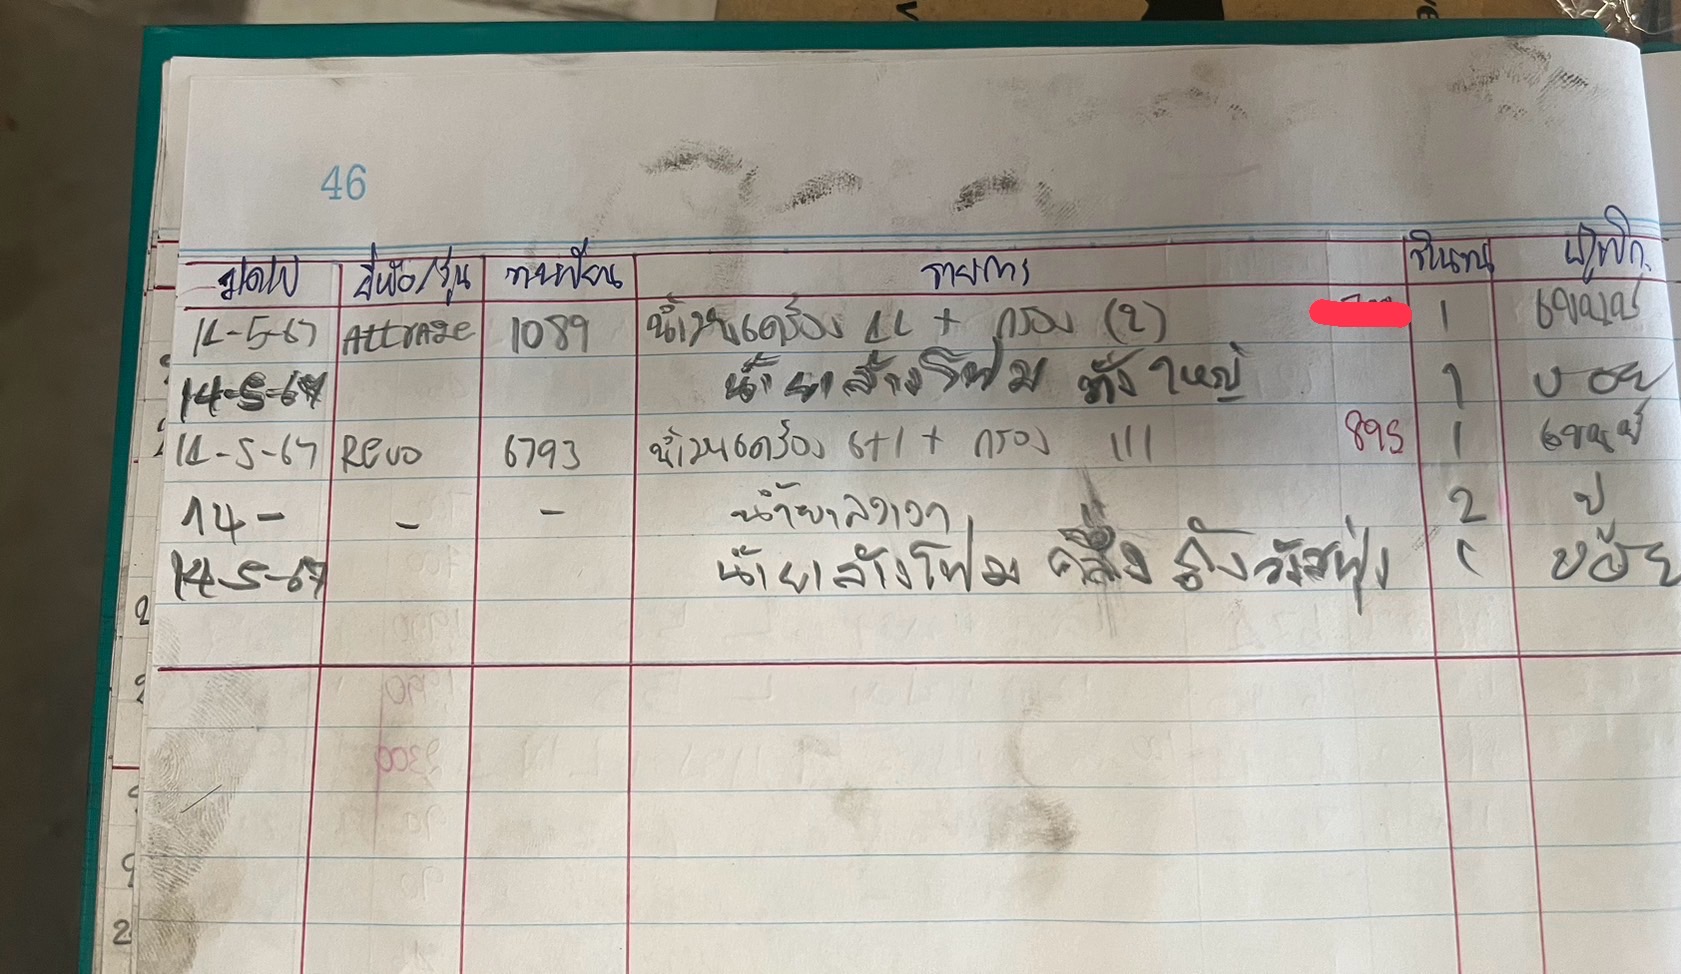 46
ยี่ห้อ/รุ่น ทะเบียน รายการ จำนวน ผู้เบิก
14-5-67 Attrage 1089 น้ำมันเครื่อง 4L + กรอง (2) 1
14-5-67 น้ำยาล้างโฟม ถังใหญ่ 1 บอย
14-5-67 Revo 6793 น้ำมันเครื่อง 6+1 + กรอง 111 895 1
14 - - - น้ำยาลงเงา 2 ป
14-5-67 น้ำยาล้างโฟม ถัง 1 บอย